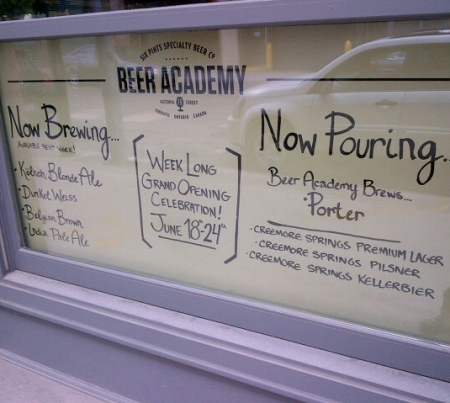 SIX PINTS SPECIALTY BEER CO
BEER ACADEMY
VICTORIA STREET
TORONTO ONTARIO CANADA
Now Brewing...
AVAILABLE NEXT WEEK!
• Kölsch Blonde Ale
• Dunkel Weiss
• Belgian Brown
• India Pale Ale
WEEK LONG
GRAND OPENING
CELEBRATION!
JUNE 18th-24th
Now Pouring...
Beer Academy Brews...
• Porter
• CREEMORE SPRINGS PREMIUM LAGER
• CREEMORE SPRINGS PILSNER
• CREEMORE SPRINGS KELLERBIER